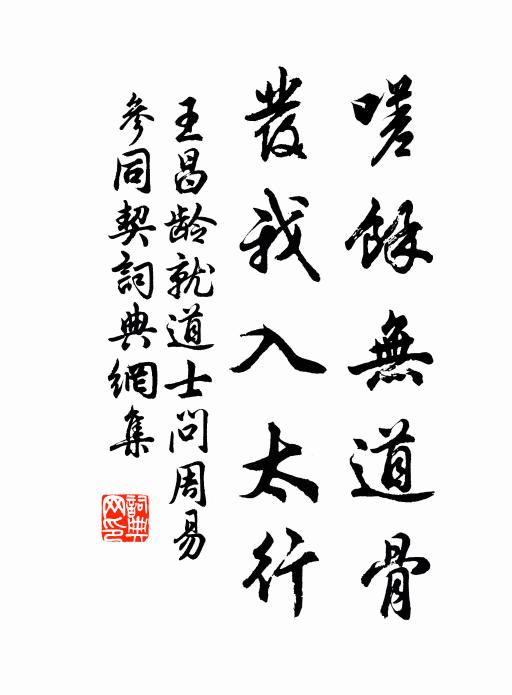 嗟餘無道骨
發我入太行
王昌齡就道士問周易
參同契詞典網集
詞典網印